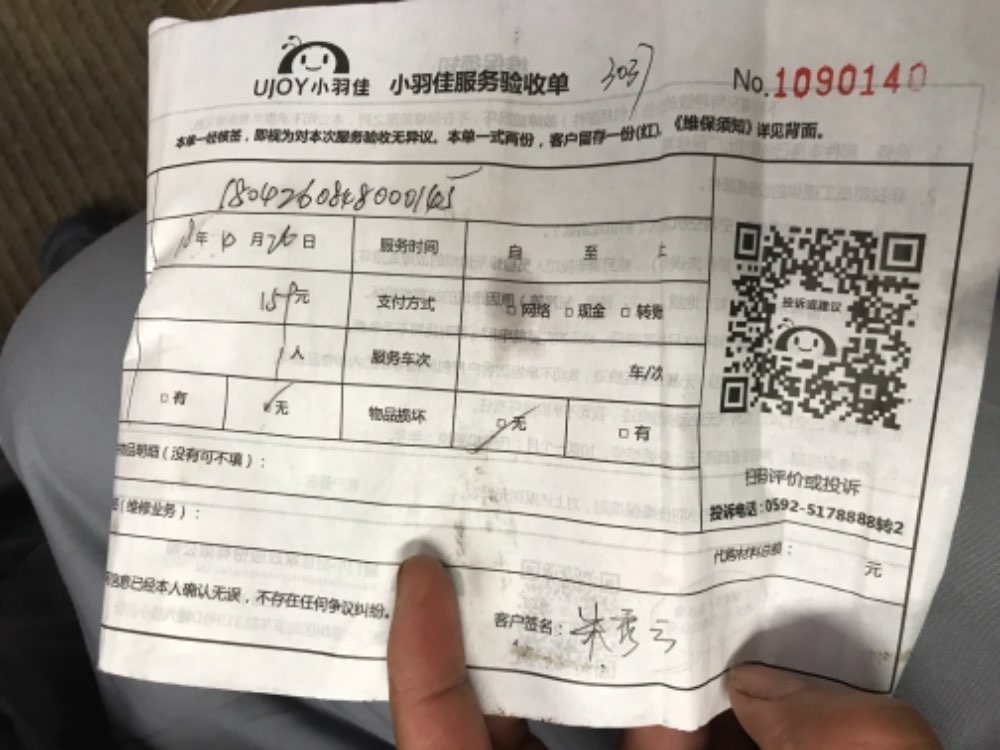 UJOY小羽佳 小羽佳服务验收单 3037 No.1090140
本单一经核签，即视为对本次服务验收无异议。本单一式两份，客户留存一份(红)，《维保须知》详见背面。
18年10月26日 服务时间 自 至
159元 支付方式 □网络 □现金 □转账
1人 服务车次 车/次
□有 无 物品损坏 □无 □有
物品明细（没有可不填）：
（维修业务）：
信息已经本人确认无误，不存在任何争议纠纷。
客户签名：朱秀云
投诉或建议
扫码评价或投诉
投诉电话:0592-5178888转2
代购材料总额： 元